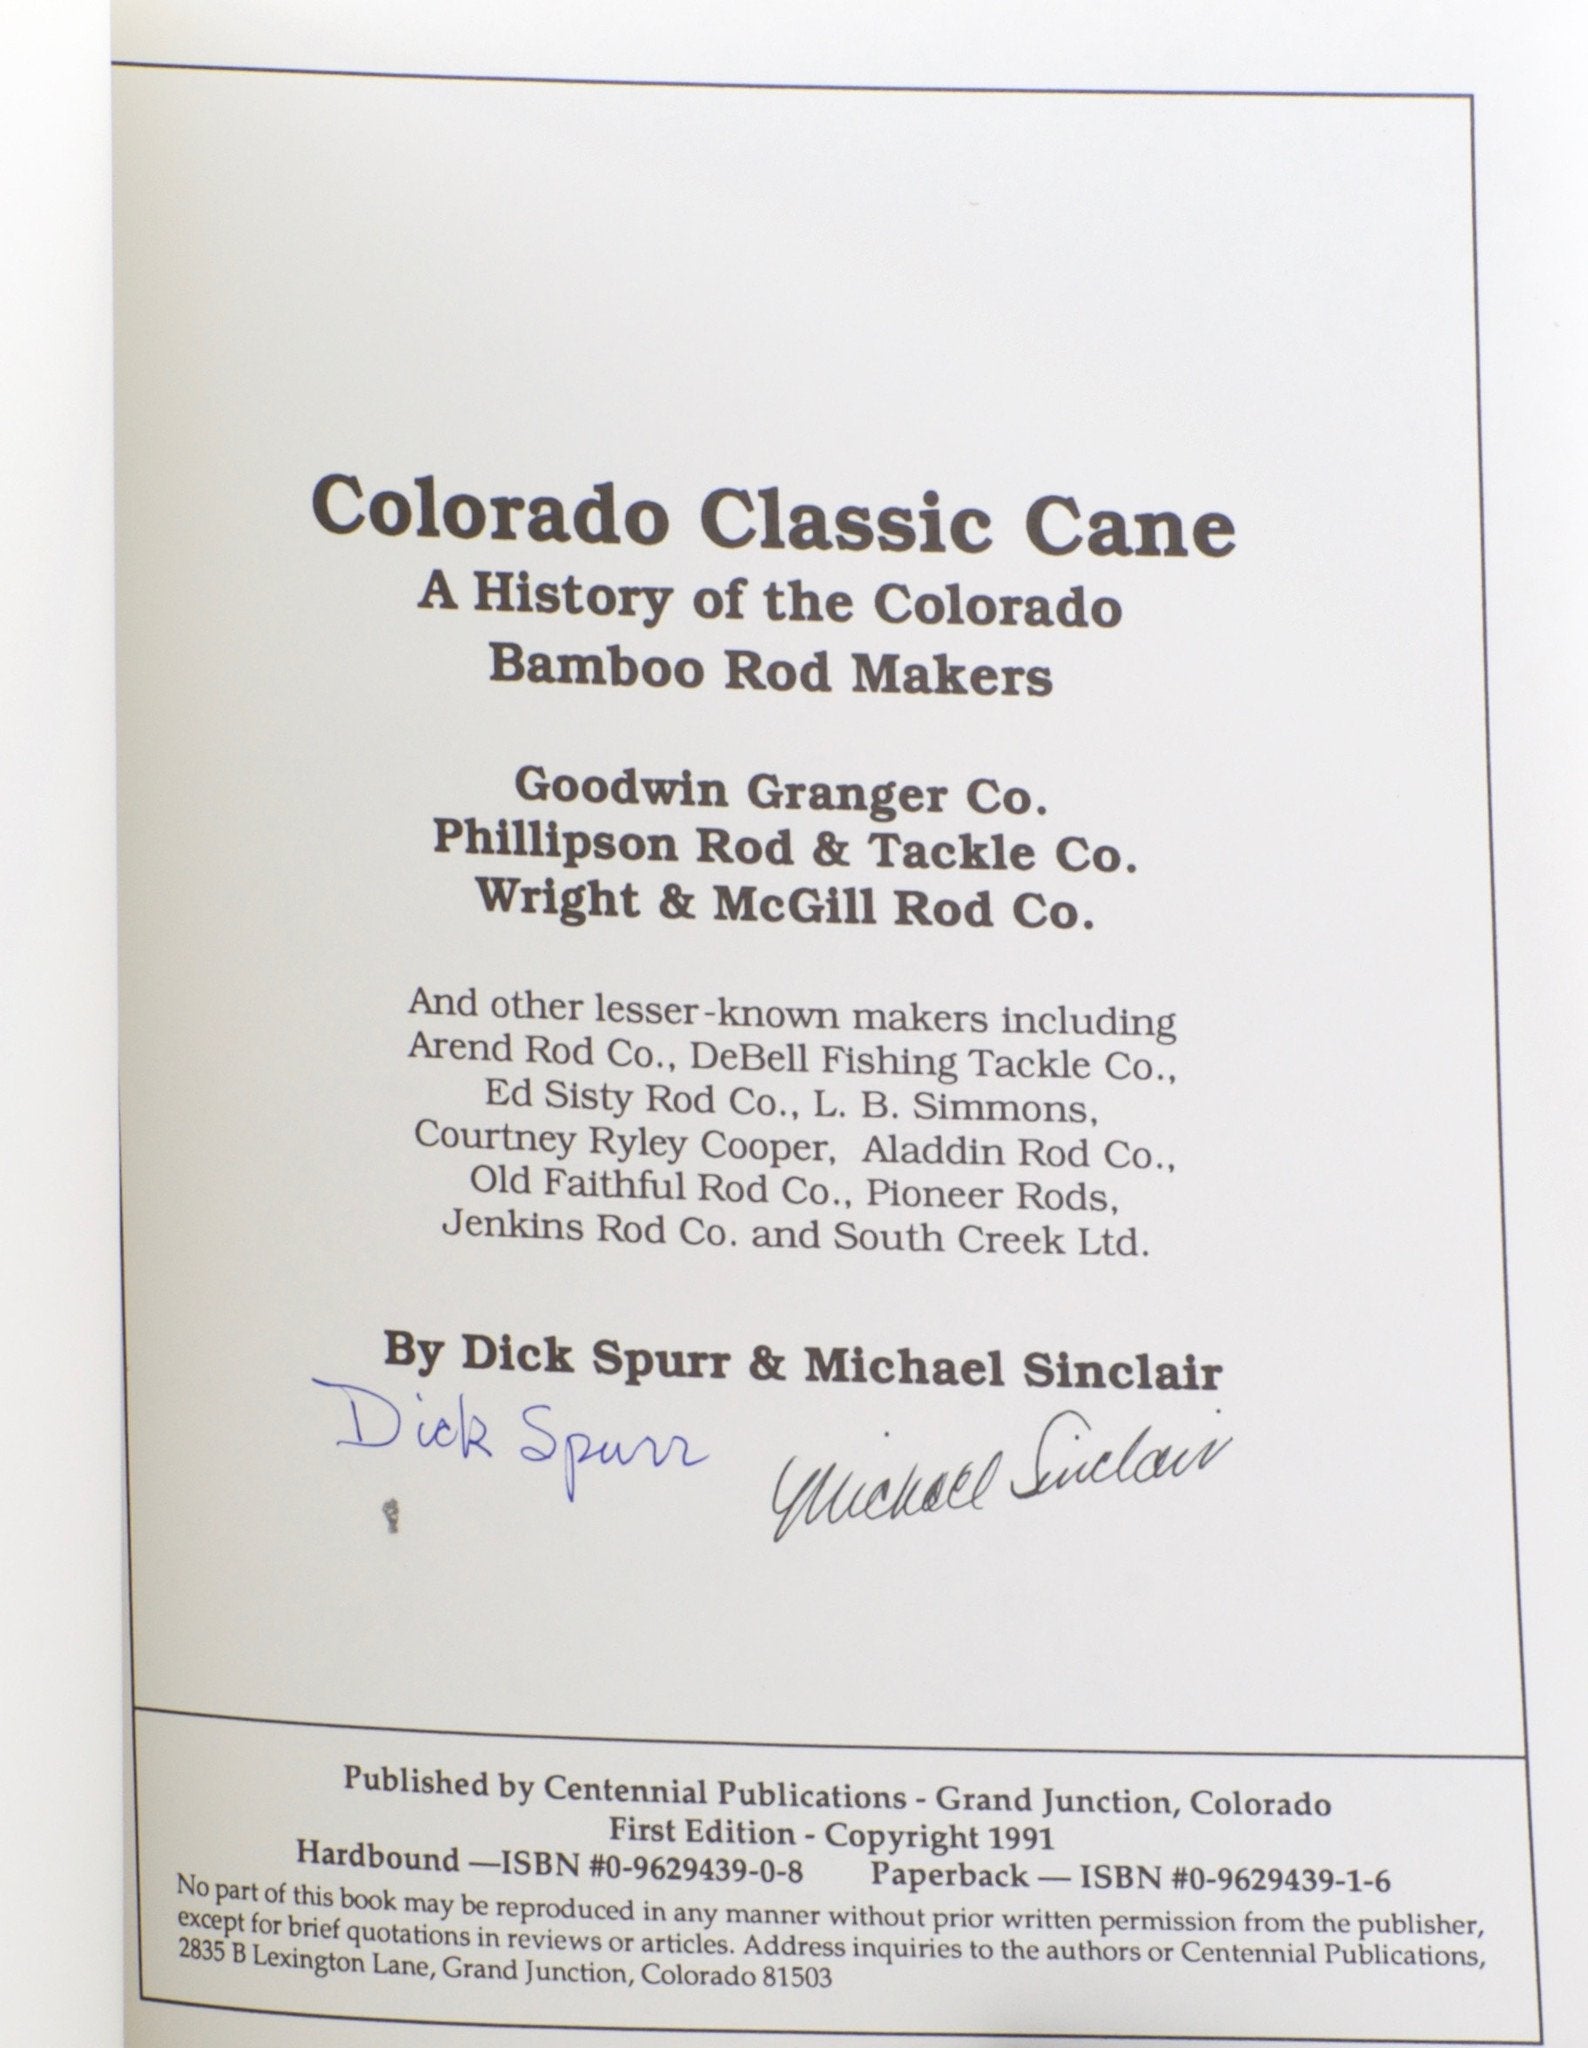 Colorado Classic Cane
A History of the Colorado
Bamboo Rod Makers
Goodwin Granger Co.
Phillipson Rod & Tackle Co.
Wright & McGill Rod Co.
And other lesser-known makers including
Arend Rod Co., DeBell Fishing Tackle Co.,
Ed Sisty Rod Co., L. B. Simmons,
Courtney Ryley Cooper, Aladdin Rod Co.,
Old Faithful Rod Co., Pioneer Rods,
Jenkins Rod Co. and South Creek Ltd.
By Dick Spurr & Michael Sinclair
Dick Spurr
Michael Sinclair
Published by Centennial Publications - Grand Junction, Colorado
First Edition - Copyright 1991
Hardbound —ISBN #0-9629439-0-8 Paperback — ISBN #0-9629439-1-6
No part of this book may be reproduced in any manner without prior written permission from the publisher,
except for brief quotations in reviews or articles. Address inquiries to the authors or Centennial Publications,
2835 B Lexington Lane, Grand Junction, Colorado 81503